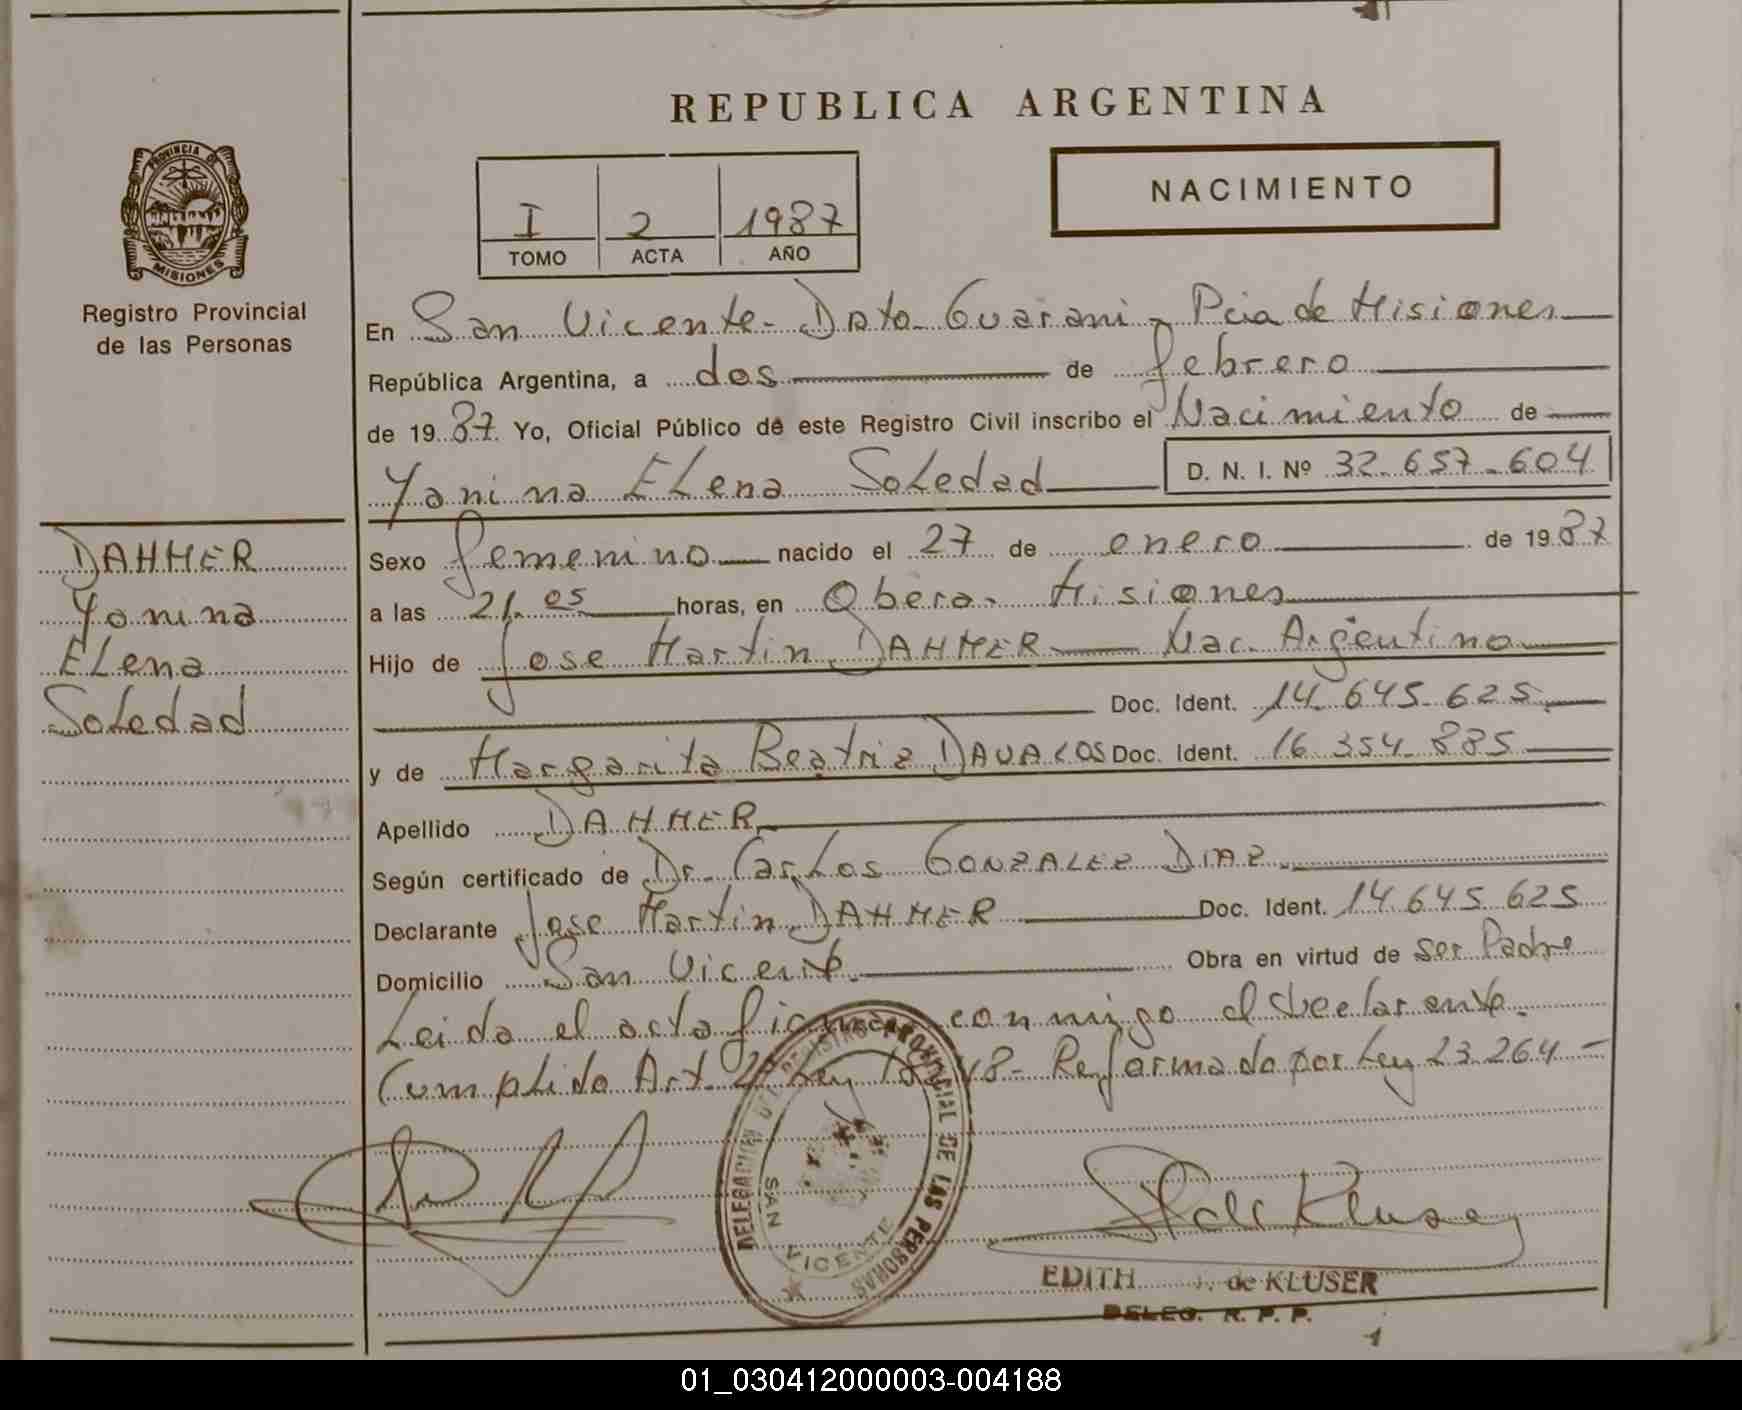 REPUBLICA ARGENTINA
PROVINCIA DE
MISIONES
Registro Provincial
de las Personas
I 2 1987
TOMO ACTA AÑO
NACIMIENTO
En San Vicente - Dpto Guarani - Pcia de Misiones
República Argentina, a dos de febrero
de 1987 Yo, Oficial Público de este Registro Civil inscribo el Nacimiento de
Yanina ELena SoLedad D. N. I. Nº 32.657.604
DAHMER
Yanina
ELena
SoLedad
Sexo femenino nacido el 27 de enero de 1987
a las 21.05 horas, en Obera - Misiones
Hijo de Jose Martin DAHMER Nac. Argentino
Doc. Ident. 14.645.625
y de Margarita Beatriz DAVALOS Doc. Ident. 16.354.885
Apellido DAHMER
Según certificado de Dr. CarLos GONZALEZ DIAZ
Declarante Jose Martin DAHMER Doc. Ident. 14.645.625
Domicilio San Vicente Obra en virtud de ser Padre
Leido el acta conmigo el declarante.
CumpLido Art. Ley Reformado por Ley 23.264 -
DELEGACION DEL REGISTRO PROVINCIAL DE LAS PERSONAS
SAN VICENTE
EDITH de KLUSER
DELEG. R. P. P.
1
01_030412000003-004188